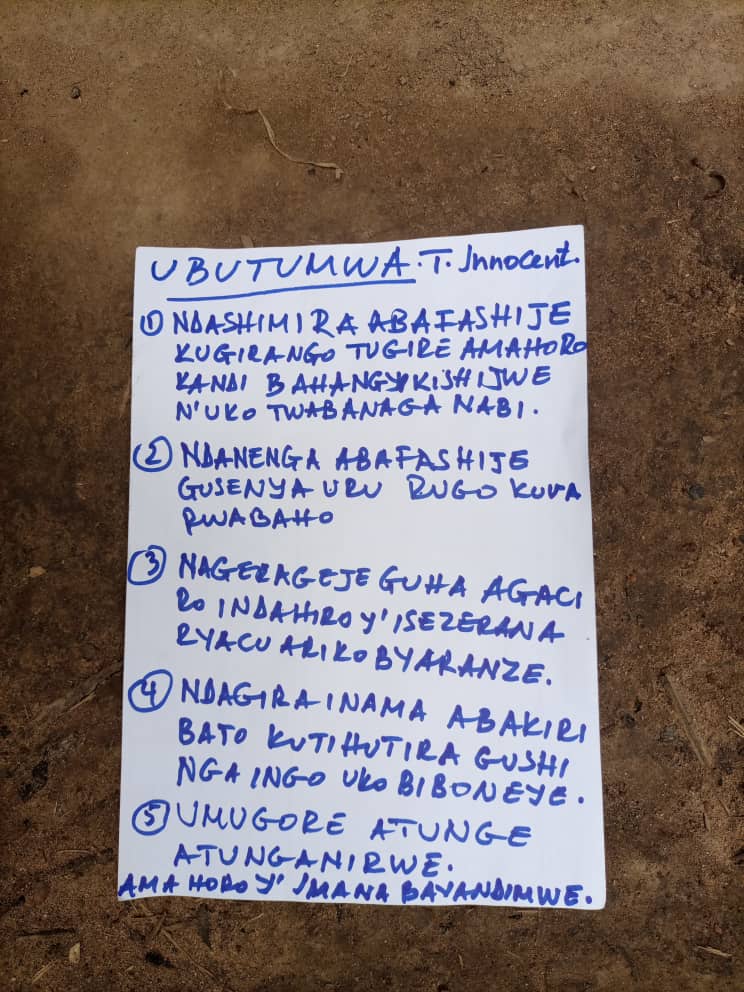 UBUTUMWA. T. Innocent.
① NDASHIMIRA ABAFASHIJE
KUGIRANGO TUGIRE AMAHORO
KANDI BAHANGYIKISHIJWE
N'UKO TWABANAGA NABI.
② NDANENGA ABAFASHIJE
GUSENYA URU RUGO KUVA
RWABAHO
③ NAGERAGEJE GUHA AGACI
RO INDAHIRO Y'ISEZERANA
RYACU ARIKO BYARANZE.
④ NDAGIRA INAMA ABAKIRI
BATO KUTIHUTIRA GUSHI
NGA INGO UKO BIBONEYE.
⑤ UMUGORE ATUNGE
ATUNGANIRWE.
AMAHORO Y'IMANA BAVANDIMWE.